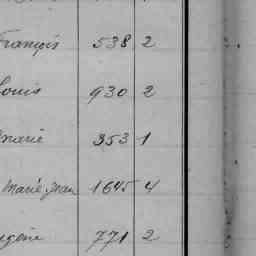 François 538 2
Louis 930 2
Marie 353 1
Marie Jean 1645 4
Eugène 771 2